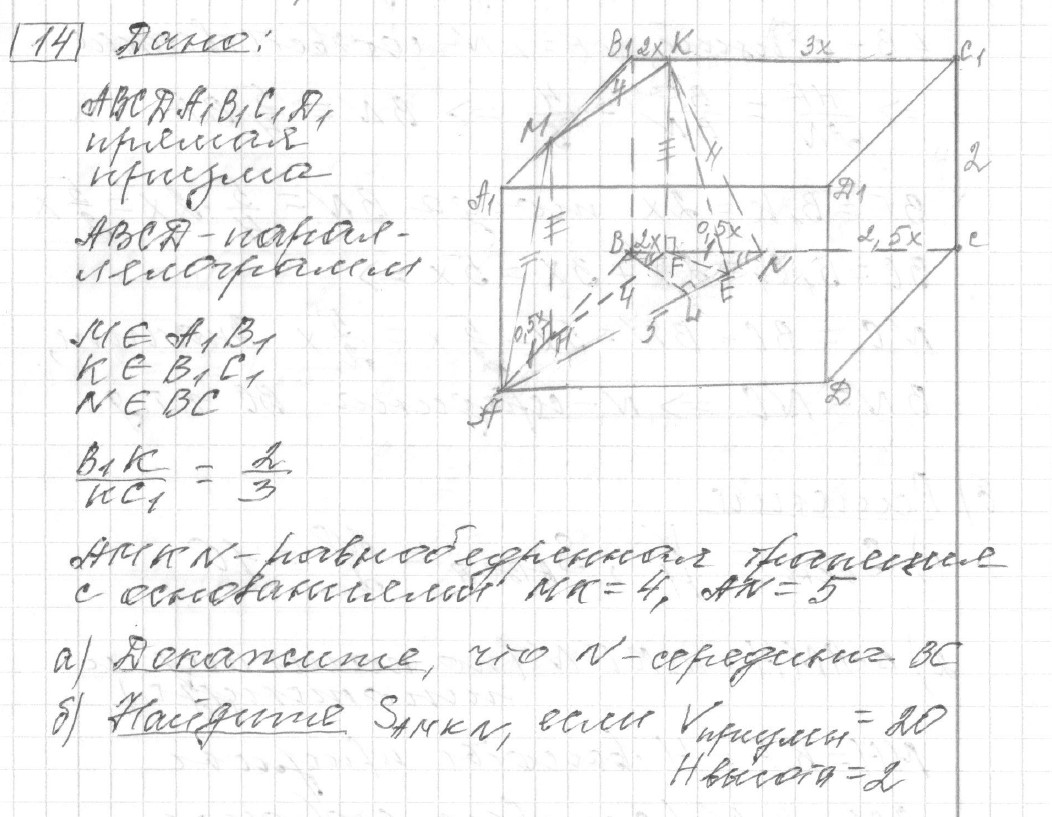 14 Дано:
ABCDA₁B₁C₁D₁
прямая
призма
ABCD - парал-
лелограмм
M ∈ A₁B₁
K ∈ B₁C₁
N ∈ BC
B₁K / KC₁ = 2 / 3
AMKN - равнобедренная трапеция
с основаниями MK = 4, AN = 5
а) Докажите, что N - середина BC
б) Найдите S_AMKN, если V призмы = 20
H высота = 2
B₁ 2x K 3x C₁
4
M
2
A₁ D₁
B 2x F 0,5x N 2,5x C
4
E
5
0,5x
A D